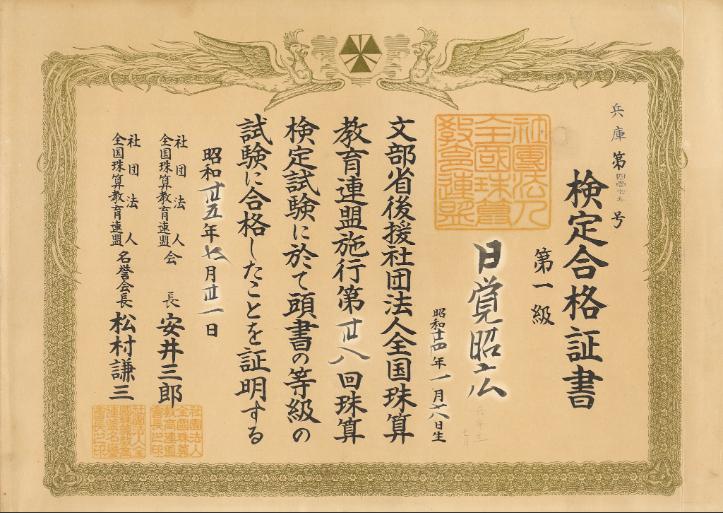 兵庫第四壱七五号
検定合格証書
第一級
日覚昭広
昭和廿四年一月六八日生
文部省後援社団法人全国珠算
教育連盟施行第廿八回珠算
検定試験に於て頭書の等級の
試験に合格したことを証明する
昭和廿五年七月廿一日
社団法人
全国珠算教育連盟会長 安井三郎
社団法人
全国珠算教育連盟名誉会長 松村謙三
社団法人
全国珠算
教育連盟